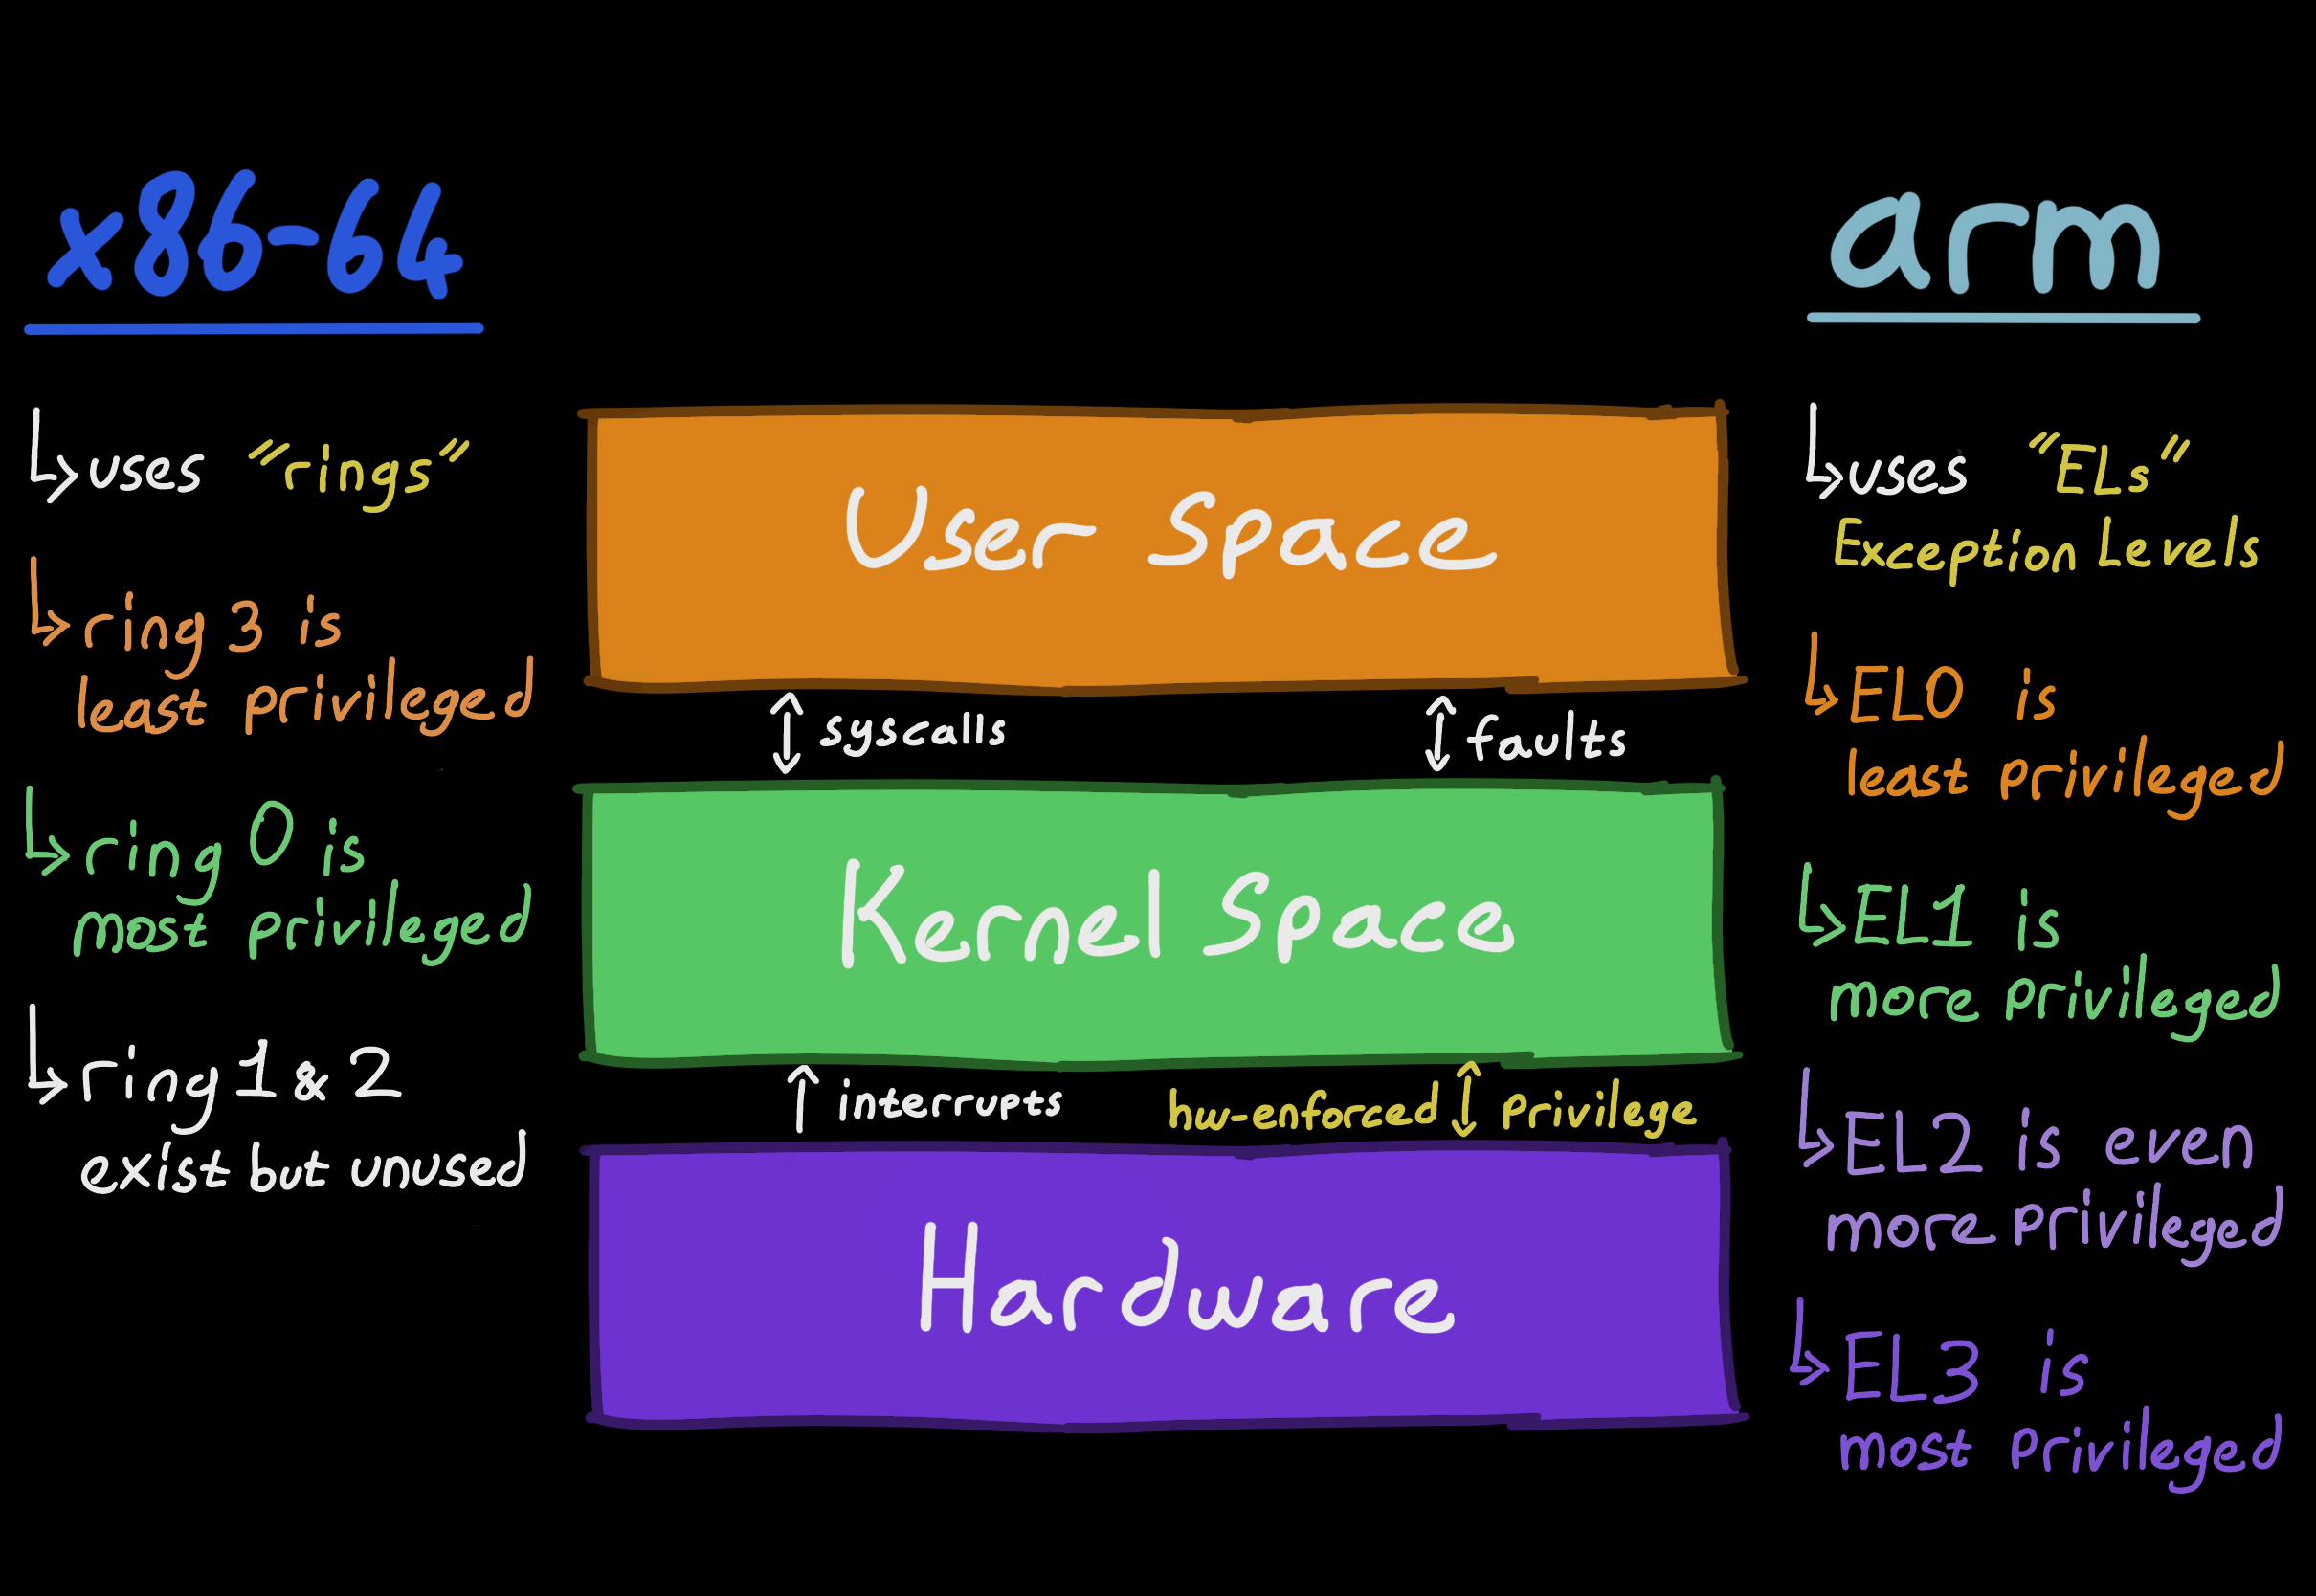 x86-64
uses "rings"
ring 3 is
least privileged
ring 0 is
most privileged
ring 1 & 2
exist but unused
User Space
syscalls
faults
Kernel Space
interrupts
hw-enforced privilege
Hardware
arm
uses "ELs"
Exception Levels
EL0 is
least privileged
EL1 is
more privileged
EL2 is even
more privileged
EL3 is
most privileged